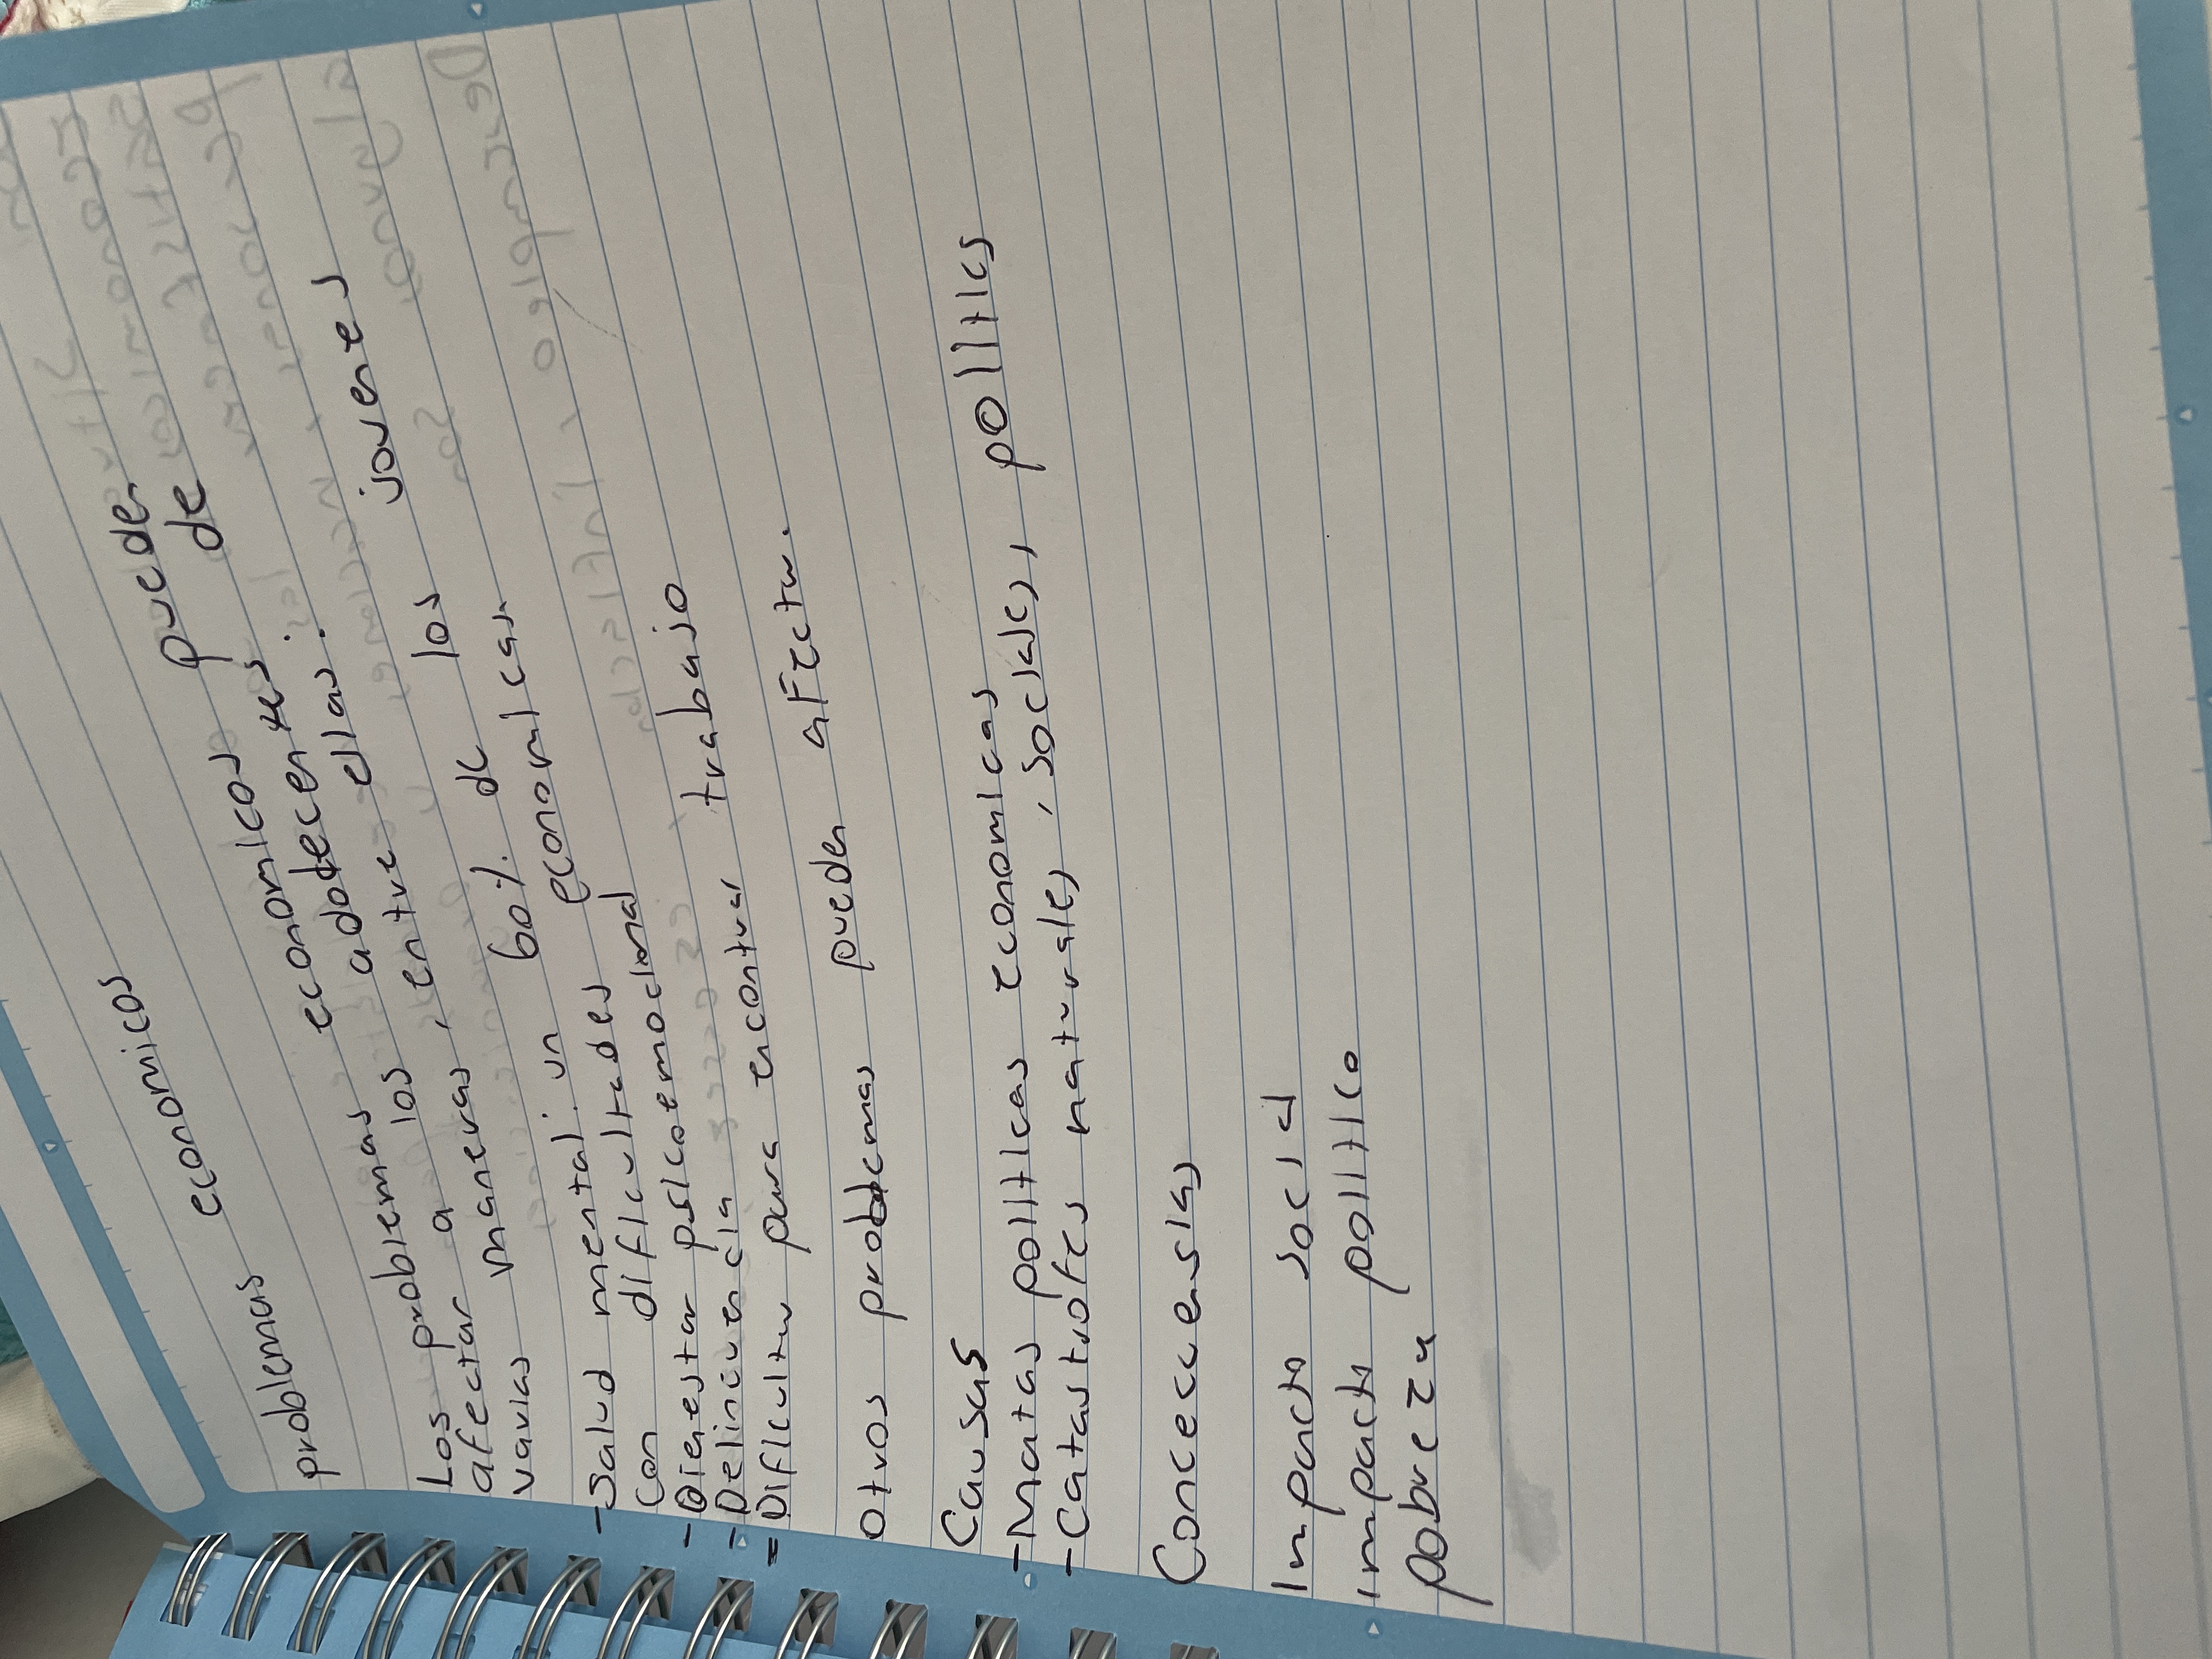 problemas economicos
problemas economicos
Los problemas economicos pueden
afectar a los adolecentes de
varias maneras, entre ellas:
-Salud mental: un 60% de los jovenes
con dificultades economicas
-Bienestar psicoemocional
-Delincuencia
=Dificultar para encontrar trabajo
otros problemas pueden afectar.
Causas
-Matas politicas economicas
-Catastrofes naturales, sociales, politics
Concecuensias
Impacto social
impacto politico
pobreza